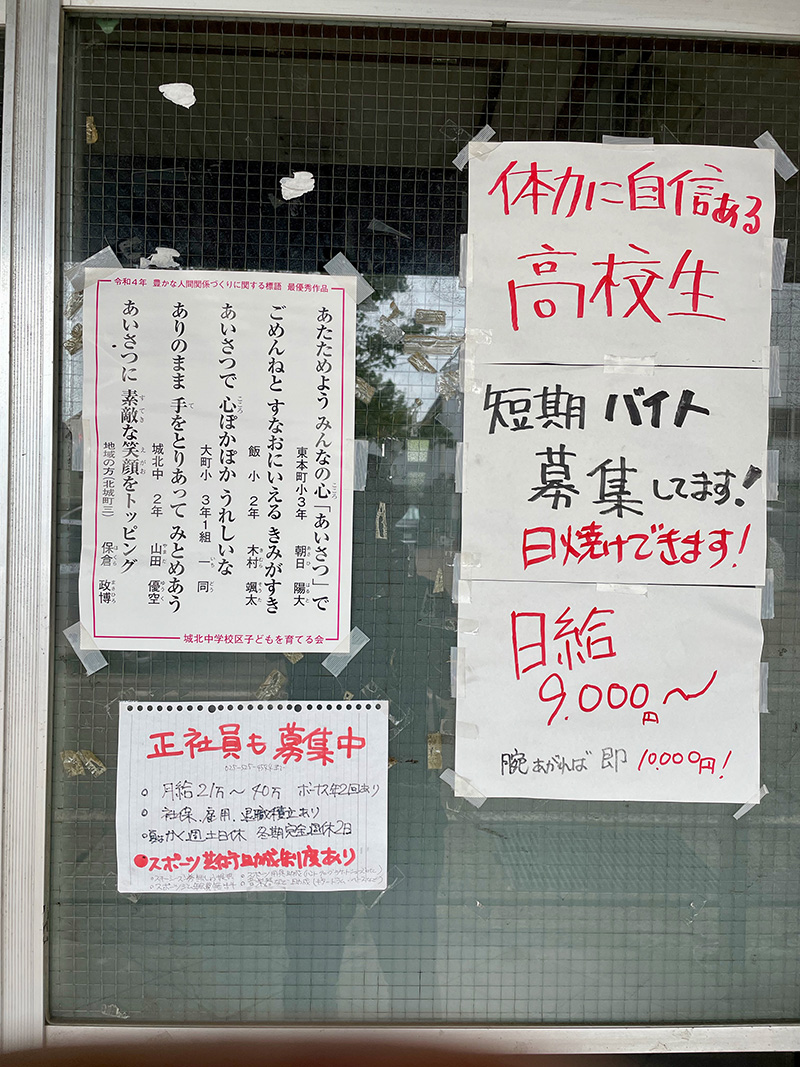 体力に自信ある
高校生
短期 バイト
募集してます!
日焼けできます!
日給
9,000円〜
腕あがれば 即 10,000円!
令和4年 豊かな人間関係づくりに関する標語 最優秀作品
あたためよう みんなの心「あいさつ」で
東本町小3年 朝日 陽大
ごめんねと すなおにいえる きみがすき
飯 小 2年 木村 颯太
あいさつで 心ぽかぽか うれしいな
大町小 3年1組 一 同
ありのまま 手をとりあって みとめあう
城北中 2年 山田 優空
あいさつに 素敵な笑顔をトッピング
地域の方(北城町三) 保倉 政博
城北中学校区子どもを育てる会
正社員も募集中
○ 月給21万〜40万 ボーナス年2回あり
○ 社保、雇用、退職積立あり
週土日休 冬期完全週休2日
●スポーツ 芸術助成制度あり